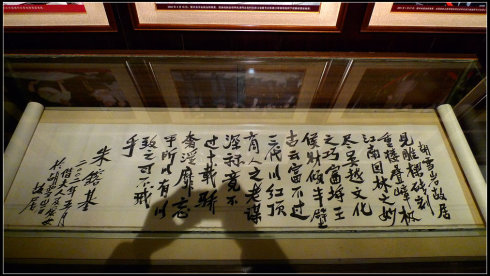 胡雪岩故居
见雕梁砖刻
重楼叠嶂极
江南园林之妙
尽吴越文化
之巧富埒王
侯财倾半壁
古云富不过
三代以红顶
商人之老谋
深算竟不
过十载骄
奢淫靡忘
乎所以有以
致之可不戒
乎
朱镕基